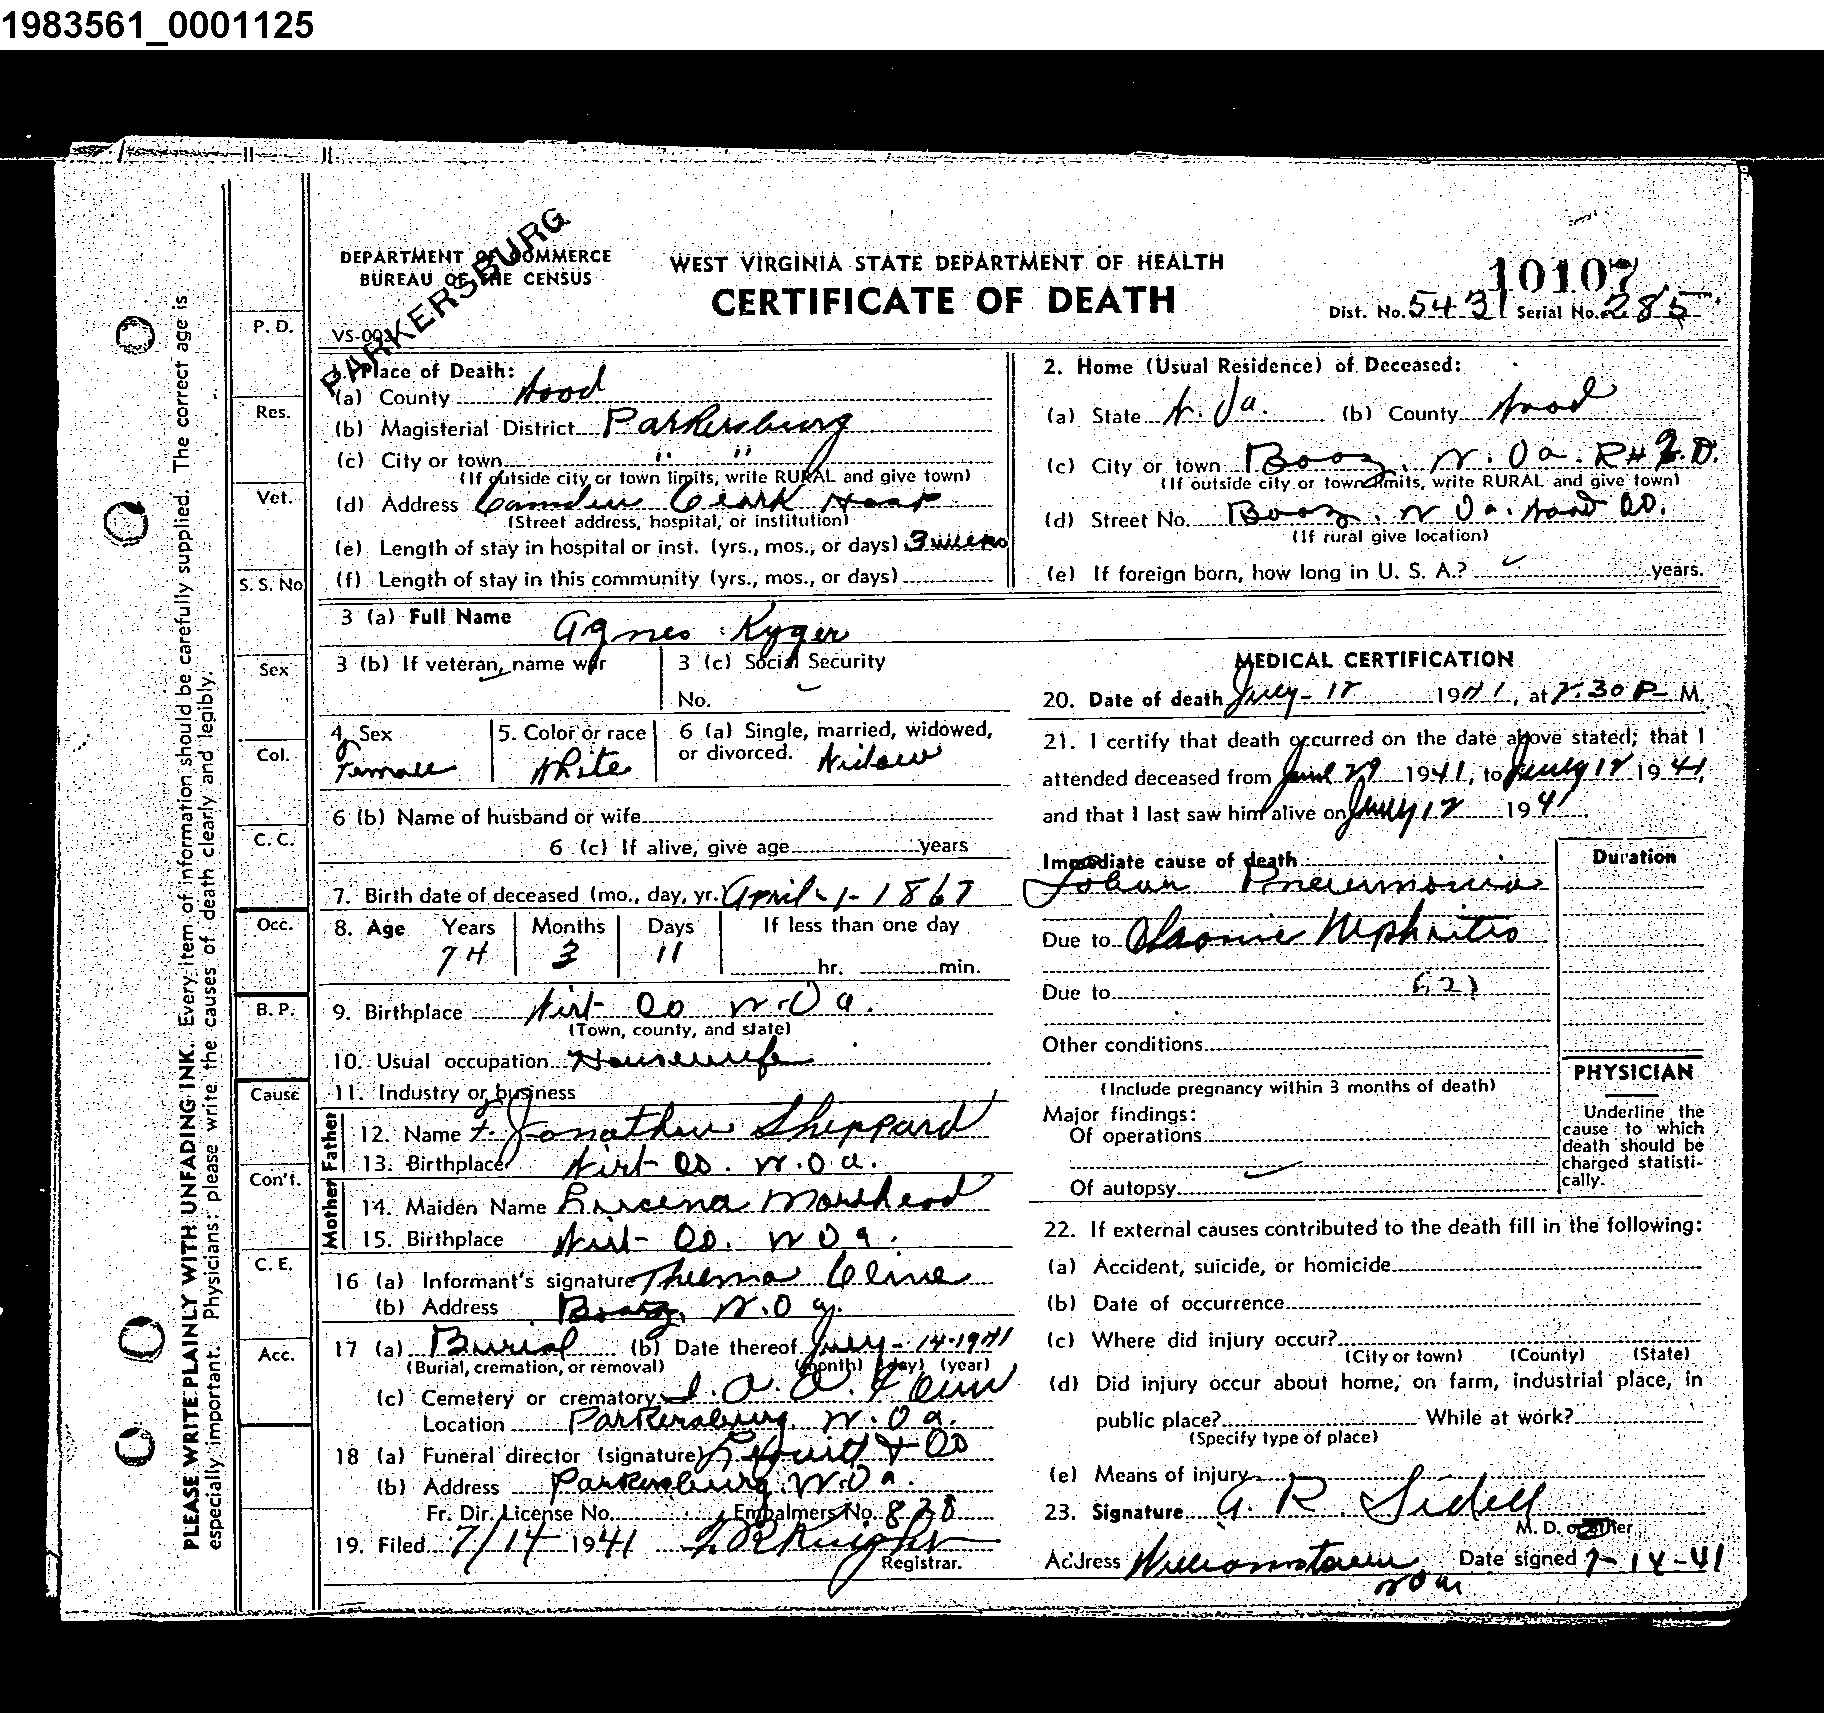 1983561_0001125
PARKERSBURG
DEPARTMENT OF COMMERCE
BUREAU OF THE CENSUS
WEST VIRGINIA STATE DEPARTMENT OF HEALTH
CERTIFICATE OF DEATH
10107
Dist. No. 5431 Serial No. 285
PLEASE WRITE PLAINLY WITH UNFADING INK. Every item of information should be carefully supplied. The correct age is
especially important. Physicians: please write the causes of death clearly and legibly.
P. D.
Res.
Vet.
S. S. No
Sex
Col.
C. C.
Occ.
B. P.
Cause
Con't.
C. E.
Acc.
Place of Death:
(a) County Wood
(b) Magisterial District Parkersburg
(c) City or town " "
(If outside city or town limits, write RURAL and give town)
(d) Address Camden Clark Hosp
(Street address, hospital, or institution)
(e) Length of stay in hospital or inst. (yrs., mos., or days) 3 weeks
(f) Length of stay in this community (yrs., mos., or days)
2. Home (Usual Residence) of Deceased:
(a) State W. Va. (b) County Wood
(c) City or town Boaz, W. Va.
(If outside city or town limits, write RURAL and give town)
(d) Street No. Boaz, W Va. Wood Co.
(If rural give location)
(e) If foreign born, how long in U. S. A.? years.
3 (a) Full Name Agnes Kyger
3 (b) If veteran, name war
3 (c) Social Security
No.
4. Sex
Female
5. Color or race
White
6 (a) Single, married, widowed,
or divorced. Widow
6 (b) Name of husband or wife
6 (c) If alive, give age years
7. Birth date of deceased (mo., day, yr.) April-1-1867
8. Age Years Months Days If less than one day
74 3 11 hr. min.
9. Birthplace Wirt Co W. Va.
(Town, county, and state)
10. Usual occupation Housewife
11. Industry or business
Father
12. Name Jonathan Sheppard
13. Birthplace Wirt Co. W. Va.
Mother
14. Maiden Name Lucena Morehead
15. Birthplace Wirt Co. W Va.
16 (a) Informant's signature Thelma Cline
(b) Address Boaz, W. Va.
17 (a) Burial (b) Date thereof July-14-1941
(Burial, cremation, or removal) (month) (day) (year)
(c) Cemetery or crematory
Location Parkersburg W. Va.
18 (a) Funeral director (signature) & Co
(b) Address Parkersburg W. Va.
Fr. Dir. License No. Embalmers No.
19. Filed 7/14 1941 Knight
Registrar.
MEDICAL CERTIFICATION
20. Date of death July-12 1941, at 2:30 P M.
21. I certify that death occurred on the date above stated; that I
attended deceased from 1941, to July 12 1941,
and that I last saw him alive on July 12 1941
Immediate cause of death
Lobar Pneumonia
Duration
Due to Chronic Nephritis
Due to
Other conditions
(Include pregnancy within 3 months of death)
Major findings:
Of operations
Of autopsy
PHYSICIAN
Underline the
cause to which
death should be
charged statisti-
cally.
22. If external causes contributed to the death fill in the following:
(a) Accident, suicide, or homicide
(b) Date of occurrence
(c) Where did injury occur?
(City or town) (County) (State)
(d) Did injury occur about home, on farm, industrial place, in
public place? While at work?
(Specify type of place)
(e) Means of injury
23. Signature A. R. Sidell
M. D. or other
Address Williamstown Date signed 7-14-41
W Va